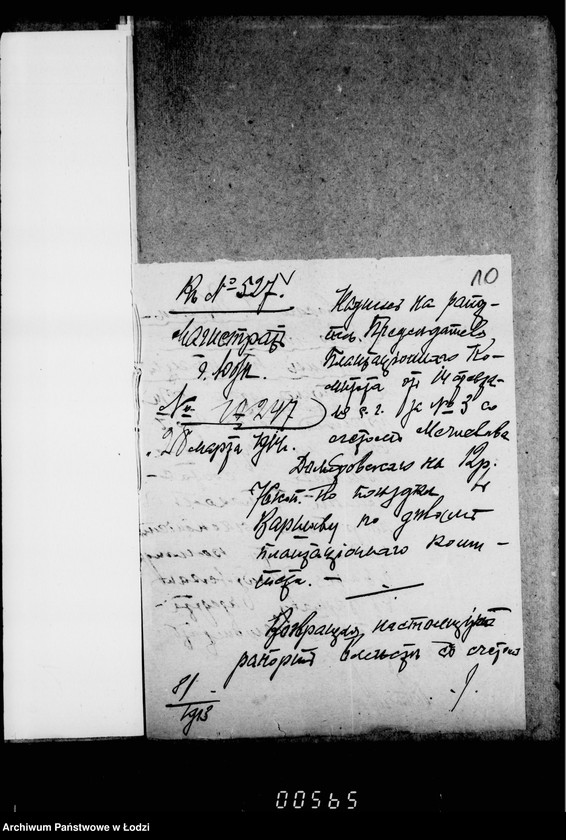 Къ № 527.
10
Магистратъ
г. Лодзи.
№ 10247
28 марта 1914.
Надпись на рапор-
тѣ Предсѣдателя
Плантаціоннаго Ко-
митета отъ 14 февра-
ля с. г. за № 3 со
счетомъ Мечислава
Домбровскаго на 12 р.
коп. по поѣздкѣ въ
Варшаву по дѣламъ
плантаціоннаго коми-
тета. —
Возвращая настоящій
рапортъ вмѣстѣ со счетомъ
81
1913
00565
Archiwum Państwowe w Łodzi